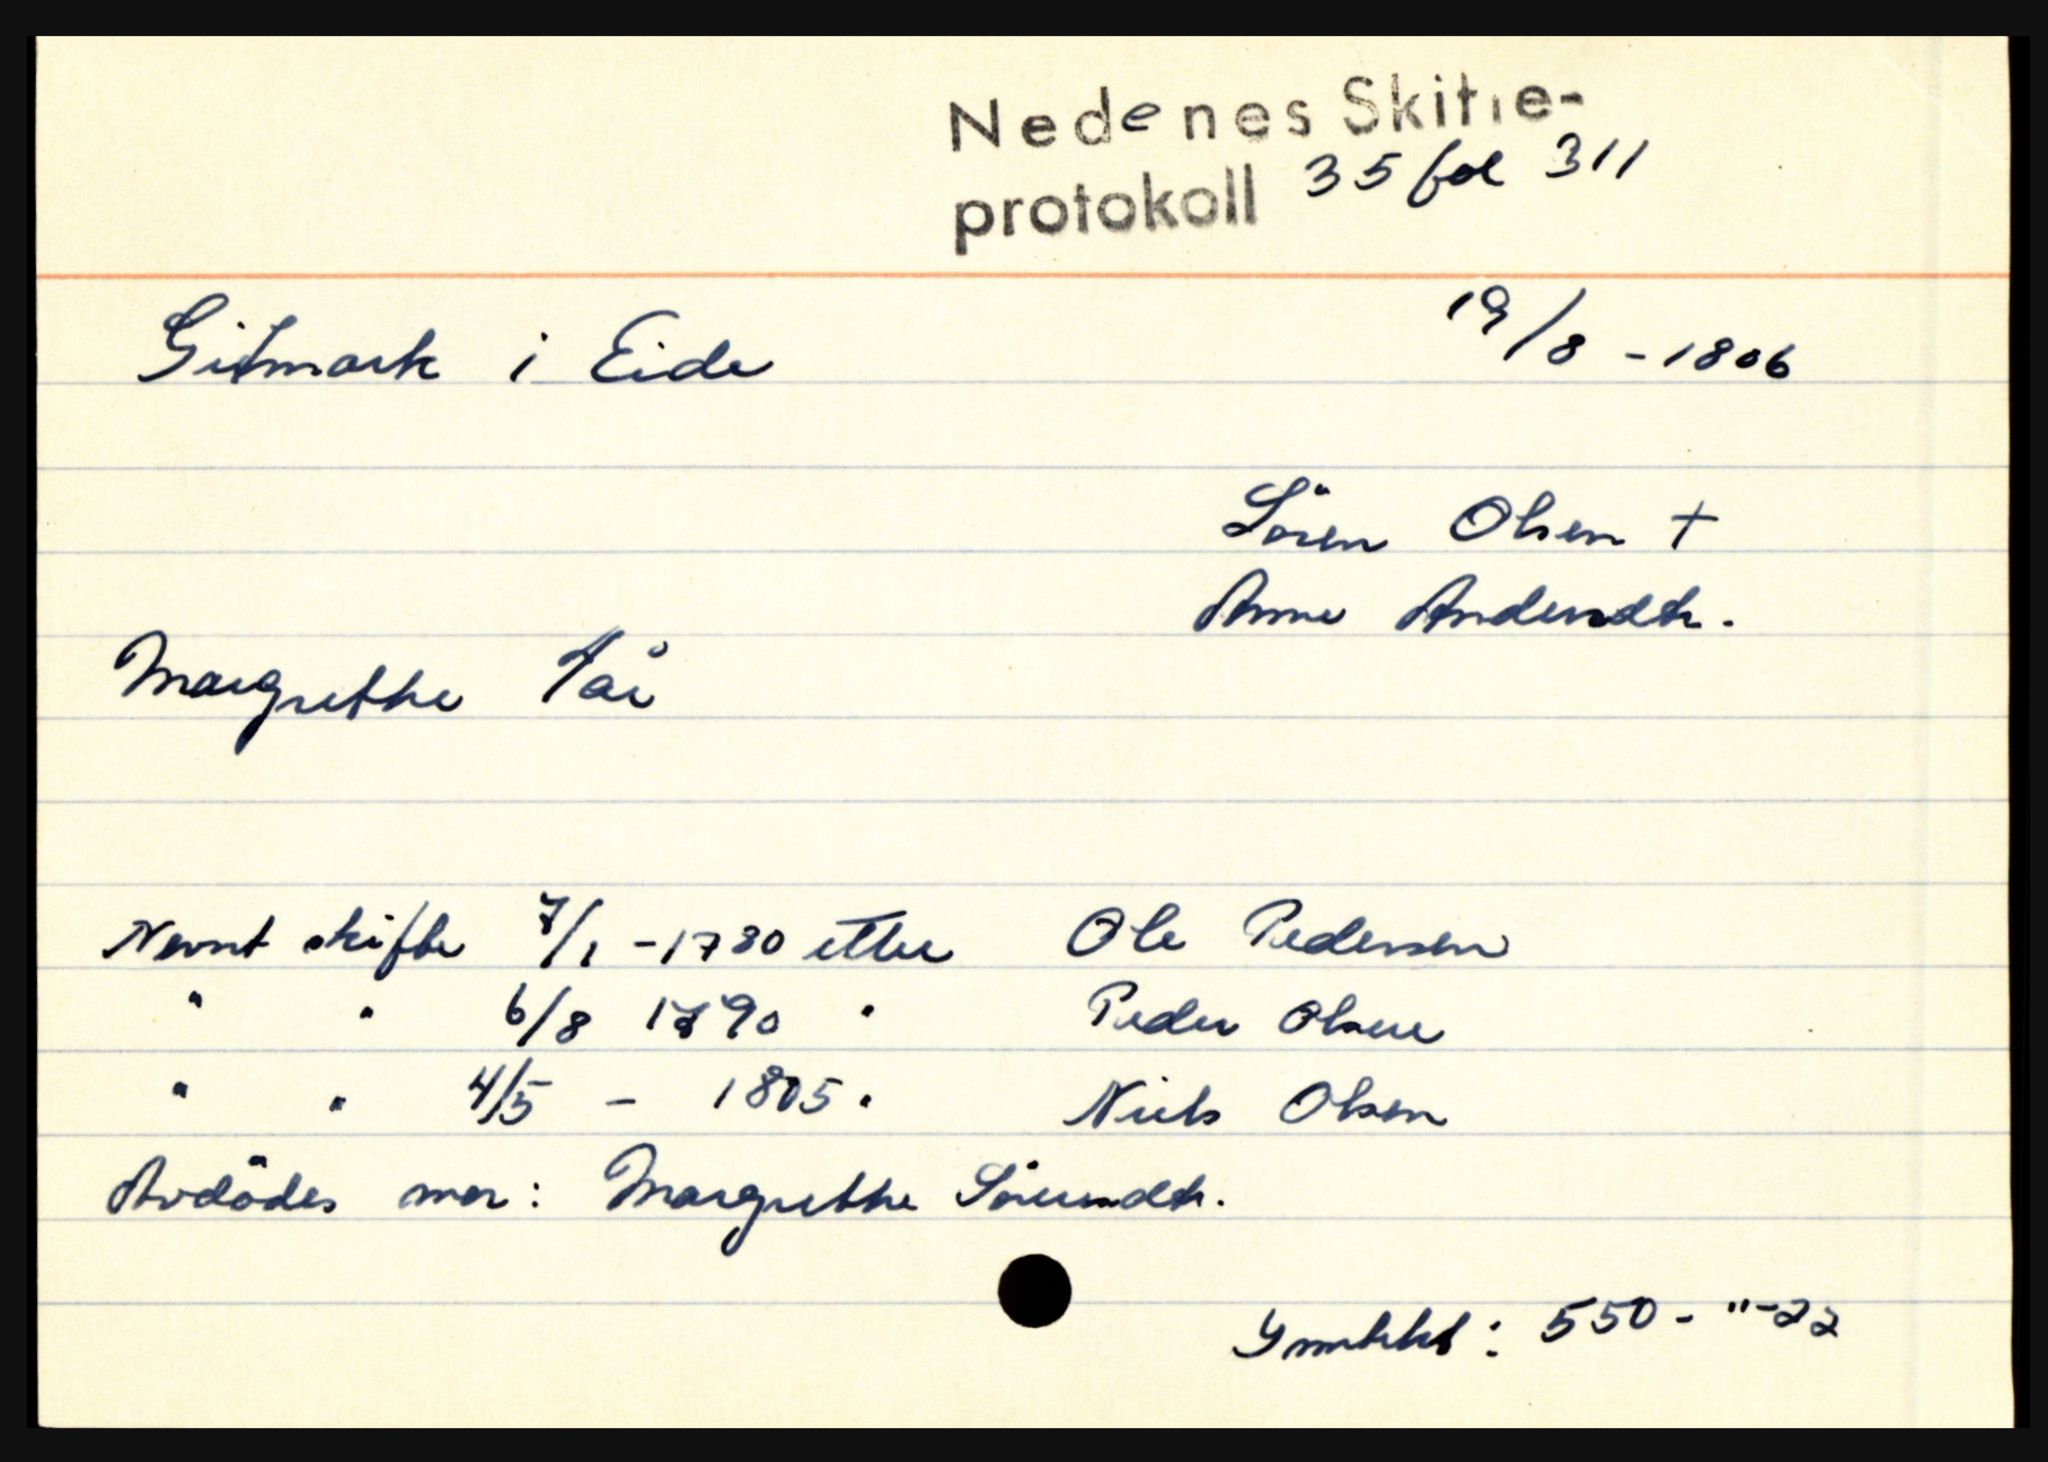 Nedenes Skifte-
protokoll 35 fol 311
Gitmark i Eide 19/8 - 1806
Sören Olsen +
Anne Andersdtr.
Margrethe 1/2 år
Nevnt skifte 7/1 - 1780 etter Ole Pedersen
" " 6/8 1790 " Peder Olsen
" " 4/5 - 1805 " Niels Olsen
Avdödes mor: Margrethe Sörensdtr.
: 550 - "-22